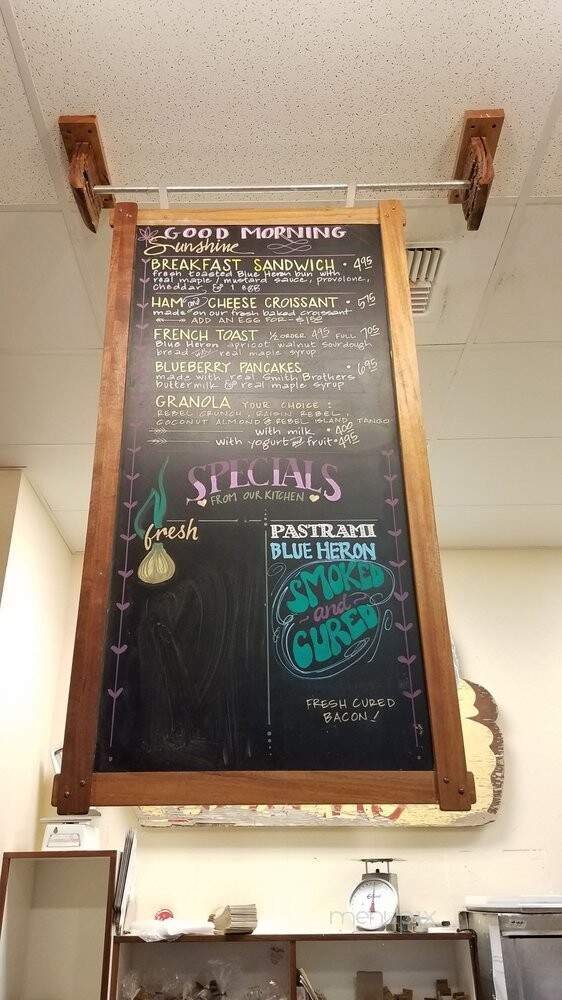 GOOD MORNING
Sunshine
BREAKFAST SANDWICH • 4.95
fresh toasted Blue Heron bun with
real maple/mustard sauce, provolone,
cheddar & 1 egg
HAM and CHEESE CROISSANT • 5.75
made on our fresh baked croissant
ADD AN EGG FOR $1.50
FRENCH TOAST ½ ORDER 4.95 FULL 7.05
Blue Heron apricot walnut sourdough
bread with real maple syrup
BLUEBERRY PANCAKES • 6.95
made with real Smith Brothers
buttermilk & real maple syrup
GRANOLA YOUR CHOICE:
REBEL CRUNCH, RAISIN REBEL,
COCONUT ALMOND & REBEL ISLAND TANGO
with milk • 4.00
with yogurt and fruit • 4.95
SPECIALS
FROM OUR KITCHEN
fresh
PASTRAMI
BLUE HERON
SMOKED
and
CURED
FRESH CURED
BACON!
menupix